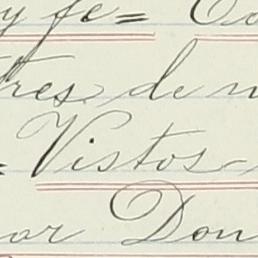 y fe=
tres de
=Vistos-
or Don